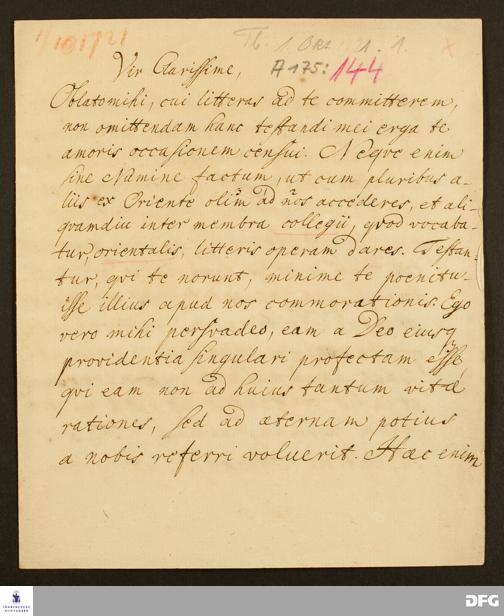 1/10 1721
Th. 1. Oct. 21. 1.
A 175: 144
Vir Clarissime,
Oblato mihi, cui litteras ad te committerem,
non omittendam hanc testandi mei erga te
amoris occasionem censui. Neqve enim
sine Numine factum, ut cum pluribus a-
liis ex Oriente olim ad nos accederes, et ali-
qvamdiu inter membra collegii, qvod vocaba-
tur, orientalis, litteris operam dares. Testan-
tur, qvi te norunt, minime te poenitu-
isse illius apud nos commorationis. Ego
vero mihi persvadeo, eam a Deo eiusq
providentia singulari profectam esse,
qvi eam non ad huius tantum vitæ
rationes, sed ad æternam potius
a nobis referri voluerit. Hæc enim
FRANCKESCHE
STIFTUNGEN
DFG